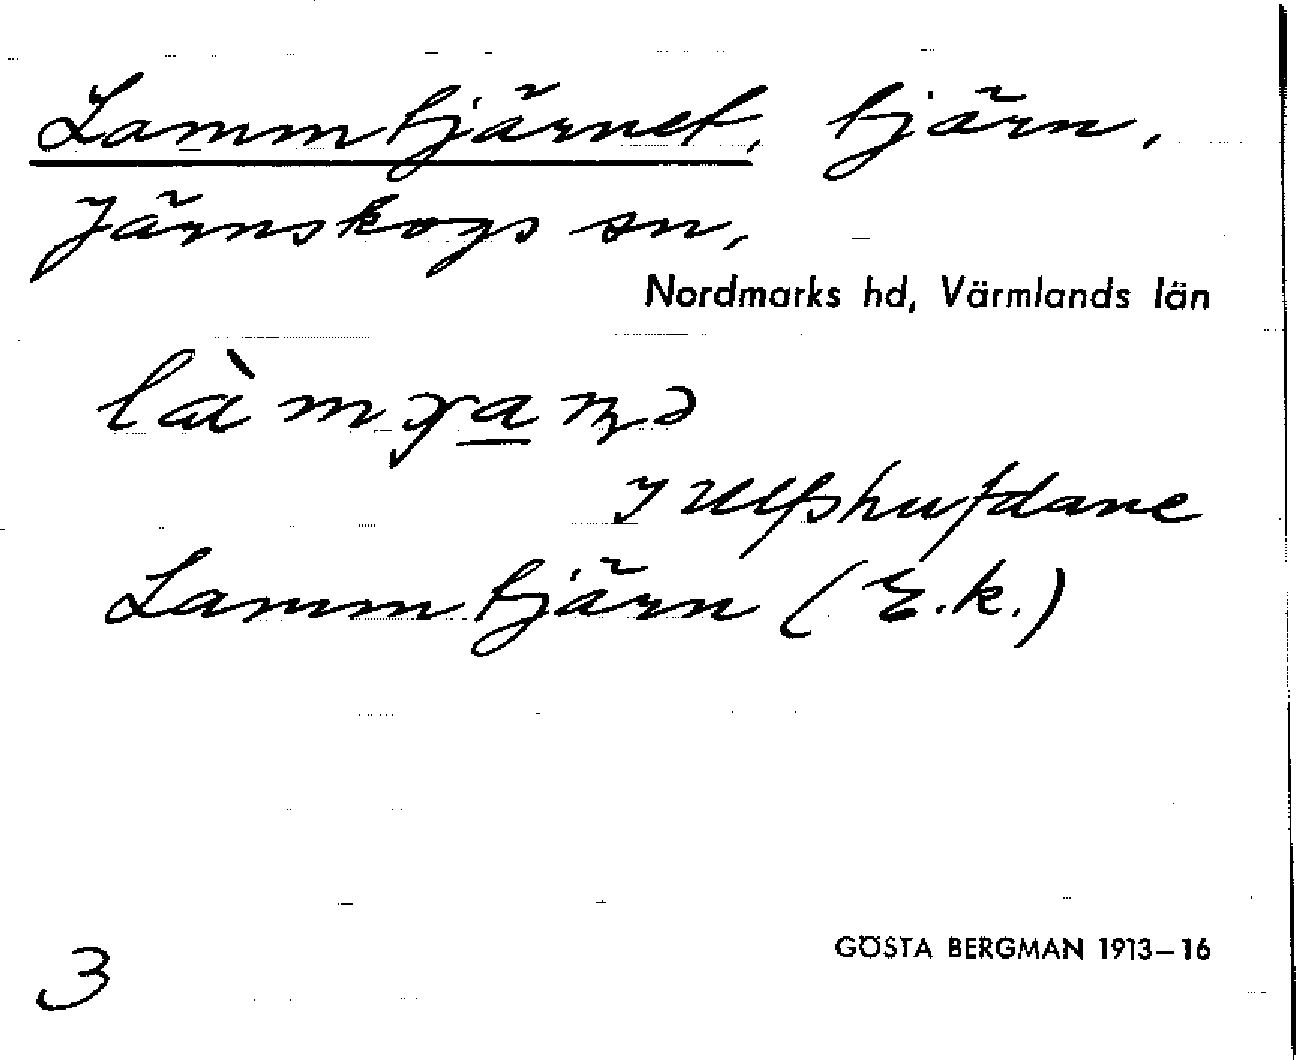 Lammtjärnet, tjärn,
Järnskogs sn,
Nordmarks hd, Värmlands län
I Ulfshufdane
Lammtjärn (E.k.)
GÖSTA BERGMAN 1913–16
3